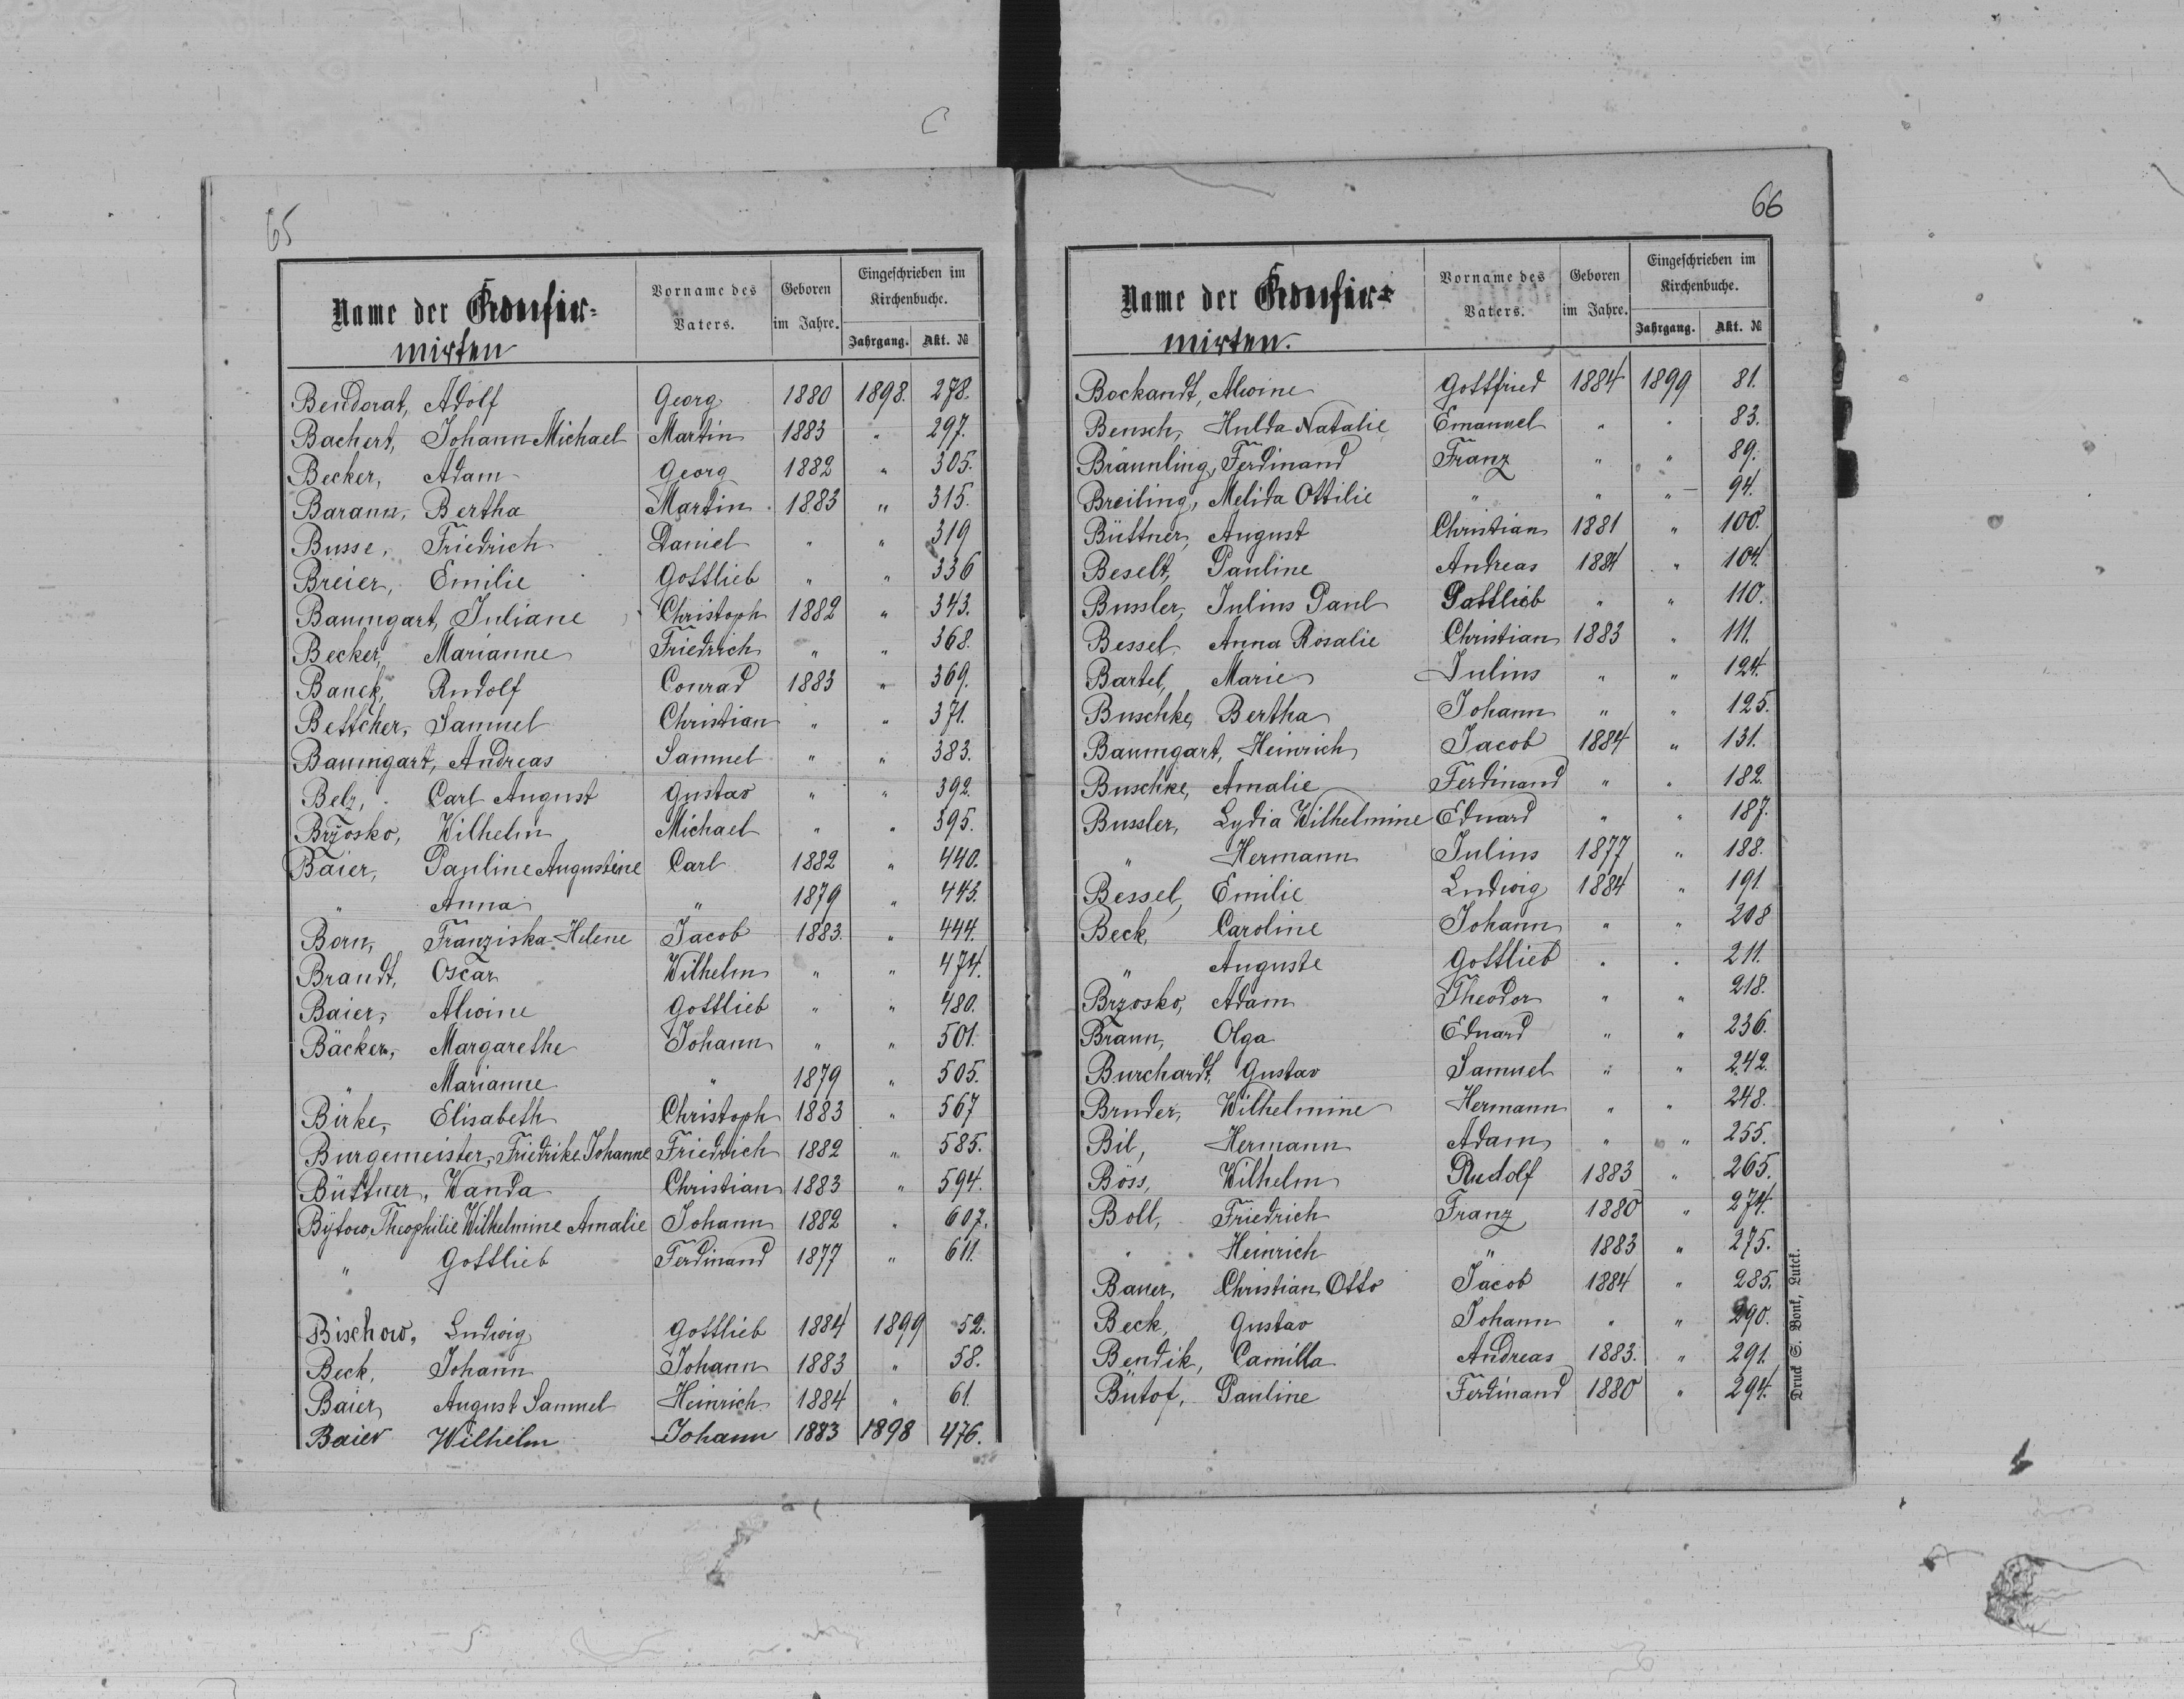 65
Name der Konfir-
mirten
Vorname des
Vaters.
Geboren
im Jahre.
Eingeschrieben im
Kirchenbuche.
Jahrgang. Akt. №
Bendorat, Adolf Georg 1880 1898. 278.
Bachert, Johann Michael Martin 1883 " 297.
Becker, Adam Georg 1882 " 305.
Barann, Bertha Martin 1883 " 315.
Busse, Friedrich Daniel " " 319
Breier, Emilie Gottlieb " " 336
Baumgart, Juliane Christoph 1882 " 343.
Becker, Marianne Friedrich " " 368.
Banek, Rudolf Conrad 1883 " 369.
Bettcher, Samuel Christian " " 371.
Baumgart, Andreas Samuel " " 383.
Belz, Carl August Gustav " " 392.
Brzosko, Wilhelm Michael " " 395.
Baier, Pauline Augustine Carl 1882 " 440.
" Anna " 1879 " 443.
Born, Franziska Helene Jacob 1883. " 444.
Brandt, Oscar Wilhelm " " 474.
Baier, Alwine Gottlieb " " 480.
Bäcker, Margarethe Johann " " 501.
" Marianne " 1879 " 505.
Birke, Elisabeth Christoph 1883 " 567
Burgemeister, Friedrike Johanne Friedrich 1882 " 585.
Büttner, Wanda Christian 1883 " 594.
Bytow, Theophilie Wilhelmine Amalie Johann 1882 " 607.
" Gottlieb Ferdinand 1877 " 611.
Bischow, Ludwig Gottlieb 1884 1899 52.
Beck, Johann Johann 1883 " 58.
Baier, August Samuel Heinrich 1884 " 61.
Baier Wilhelm Johann 1883 1898 476.
66
Name der Konfir-
mirten.
Vorname des
Vaters.
Geboren
im Jahre.
Eingeschrieben im
Kirchenbuche.
Jahrgang. Akt. №
Bockandt, Alwine Gottfried 1884 1899 81.
Bensch, Hulda Natalie Emanuel " " 83.
Bräunling, Ferdinand Franz " " 89.
Breiling, Melida Ottilie " " " 94.
Büttner, August Christian 1881 " 100.
Beselt, Pauline Andreas 1884 " 104.
Bussler, Julius Paul Gottlieb " " 110.
Bessel, Anna Rosalie Christian 1883 " 111.
Bartel, Marie Julius " " 124.
Buschke, Bertha Johann " " 125.
Baumgart, Heinrich Jacob 1884 " 131.
Buschke, Amalie Ferdinand " " 182.
Bussler, Lydia Wilhelmine Eduard " " 187.
" Hermann Julius 1877 " 188.
Bessel, Emilie Ludwig 1884 " 191.
Beck, Caroline Johann " " 208
" Auguste Gottlieb " " 211.
Brzosko, Adam Theodor " " 218.
Braun, Olga Eduard " " 236.
Burchardt, Gustav Samuel " " 242.
Bruder, Wilhelmine Hermann " " 248.
Bil, Hermann Adam " " 255.
Böss, Wilhelm Rudolf 1883 " 265.
Boll, Friedrich Franz 1880 " 274.
" Heinrich " 1883 " 275.
Bauer, Christian Otto Jacob 1884 " 285.
Beck, Gustav Johann " " 290.
Bendik, Camilla Andreas 1883. " 291.
Bütof, Pauline Ferdinand 1880 " 294.
Druck S. Bonk, Luck.